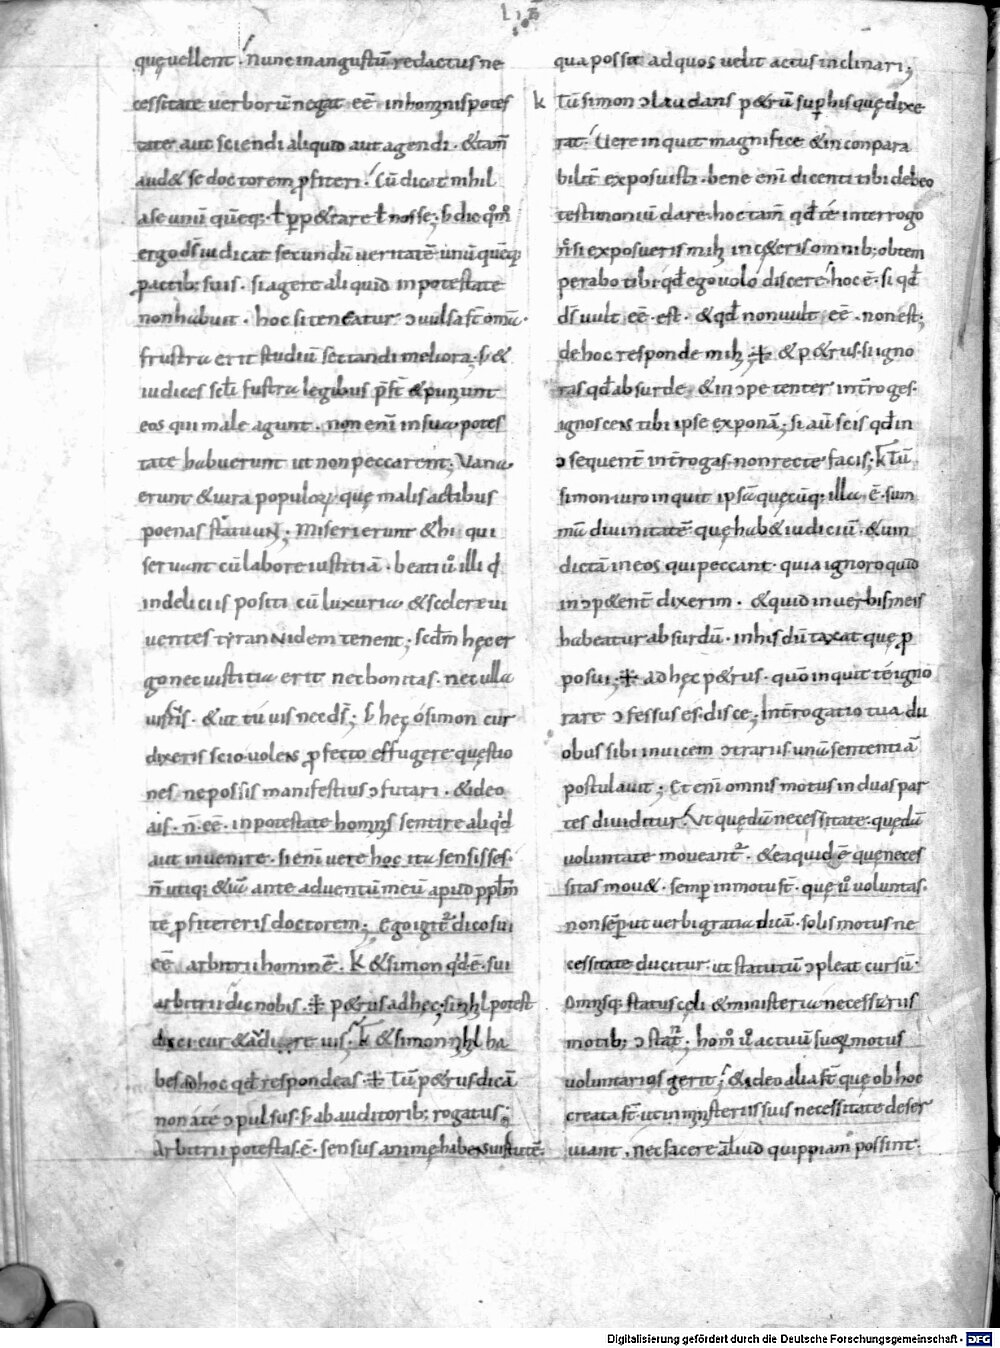 LIB
quę uellent. Nunc in angustū redactus ne
cessitate uerborū negat eē in hominis potes
tate aut sciendi aliquid aut agendi. &tam̄
aud& se doctorem ꝓfiteri. Cū dicat nihil
a se unū quēq; ł ꝑp&rare ł nosse; ꝫ dic qm̄
ergo d̄s iudicat secundū ueritatē unū quēq;
ꝓ actib; suis. si agere aliquid in potestate
non habuit. hoc si teneatur ɔuulsa st̄ omīa.
frustra erit studiū sectandi meliora; ꝫ &
iudices scłi fustra legibus p̄st̄ & puniunt
eos qui male agunt. non enī in sua potes
tate habuerunt ut non peccarent; Vana
erunt & iura populoꝝ quę malis actibus
poenas statuuN; Miseri erunt & hi qui
seruant cū labore iustitiā. beati u͛o illi q̄
in deliciis positi cū luxuria & scelere ui
uentes tyranNidem tenent; scdm̄ hęc er
go nec iustitia erit nec bonitas. nec ulla
uirtus. & ut tú uis nec d̄s; ꝫ hęc ó simon cur
dixeris scio. uolens ꝓfecto effugere quęstio
nes. ne possis manifestius ɔfutari. & ideo
ais. n̄ eē in potestate hominis sentire aliqd
aut inuenire. si enī uere hoc ita sensisses.
n̄ utiq; &iā ante aduentū meū apud pplm̄
tē ꝓfitereris doctorem; Ego igit̄ dico sui
eē arbitrii hominē. K &simon qd ē. sui
arbitrii dic nobis. ⁜ p&rus ad hęc; si nihl potest
disci cur & audire uis; K &simon nihl ha
bes ad hoc qđ respondeas. ⁜ Tū p&rus dicā
non á té ɔpulsus. ꝫ ab auditorib; rogatus;
Arbitrii potestas. ē. sensus animę habens uirtutē.
qua possit ad quos uelit actus inclinari;
k Tū simon ɔlaudans p&rū suꝑ his quę dixe
rat. Uere inquit magnifice & inconpara
bilit̄ exposuisti. bene enī dicenti tibi debeo
testimoniū dare. hoc tam̄ qđ té interrogo
n̄ si exposueris mihi in c&eris omnib; obtem
perabo tibi. qđ ego uolo discere. hoc ē. si qđ
d̄s uult eē. est. & qđ non uult eē. non est;
de hoc responde mihi; ⁜ & p&rus. si igno
ras qđ absurde, & inɔpetenter int̄roges.
ignoscens tibi ipse exponā; si aū scis qđ in
ɔsequent̄ int̄rogas. non recte facis; k Tū
simon. iuro inquit ipsā quęcūq; illa. ē. sum
mā diuinitatē. quę hab& iudiciū. & uin
dictā in eos qui peccant. quia ignoro quid
inɔp&ent̄ dixerim. & quid in uerbis meis
habeatur absurdū. in his dū taxat quę ꝓ
posui; ⁜ ad hęc p&rus. quō inquit té igno
rare ɔfessus es. disce; Int̄rogatio tua du
obus sibi inuicem ɔtrariis. unā sententiā
postulauit; Et enī omnis motus in duas par
tes diuiditur. Vt quędā necessitate. quędā
uoluntate moueant̄. & ea quidē quę neces
sitas mou&. semꝑ in motu st̄. quę u͛o uoluntas.
non sēꝑ. ut uerbi gratia dicā. solis motus ne
cessitate ducitur. ut statutū ɔpleat cursū.
Omnisq; status cęli & ministeria necessariis
motib; ɔstant; hom͛o u͛o actuū suoꝝ motus
uoluntarios gerit; & ideo alia st̄ quę ob hoc
creata st̄. ut in ministeriis suis necessitate deser
uiant. nec facere aliud quippiam possint.
Digitalisierung gefördert durch die Deutsche Forschungsgemeinschaft - DFG